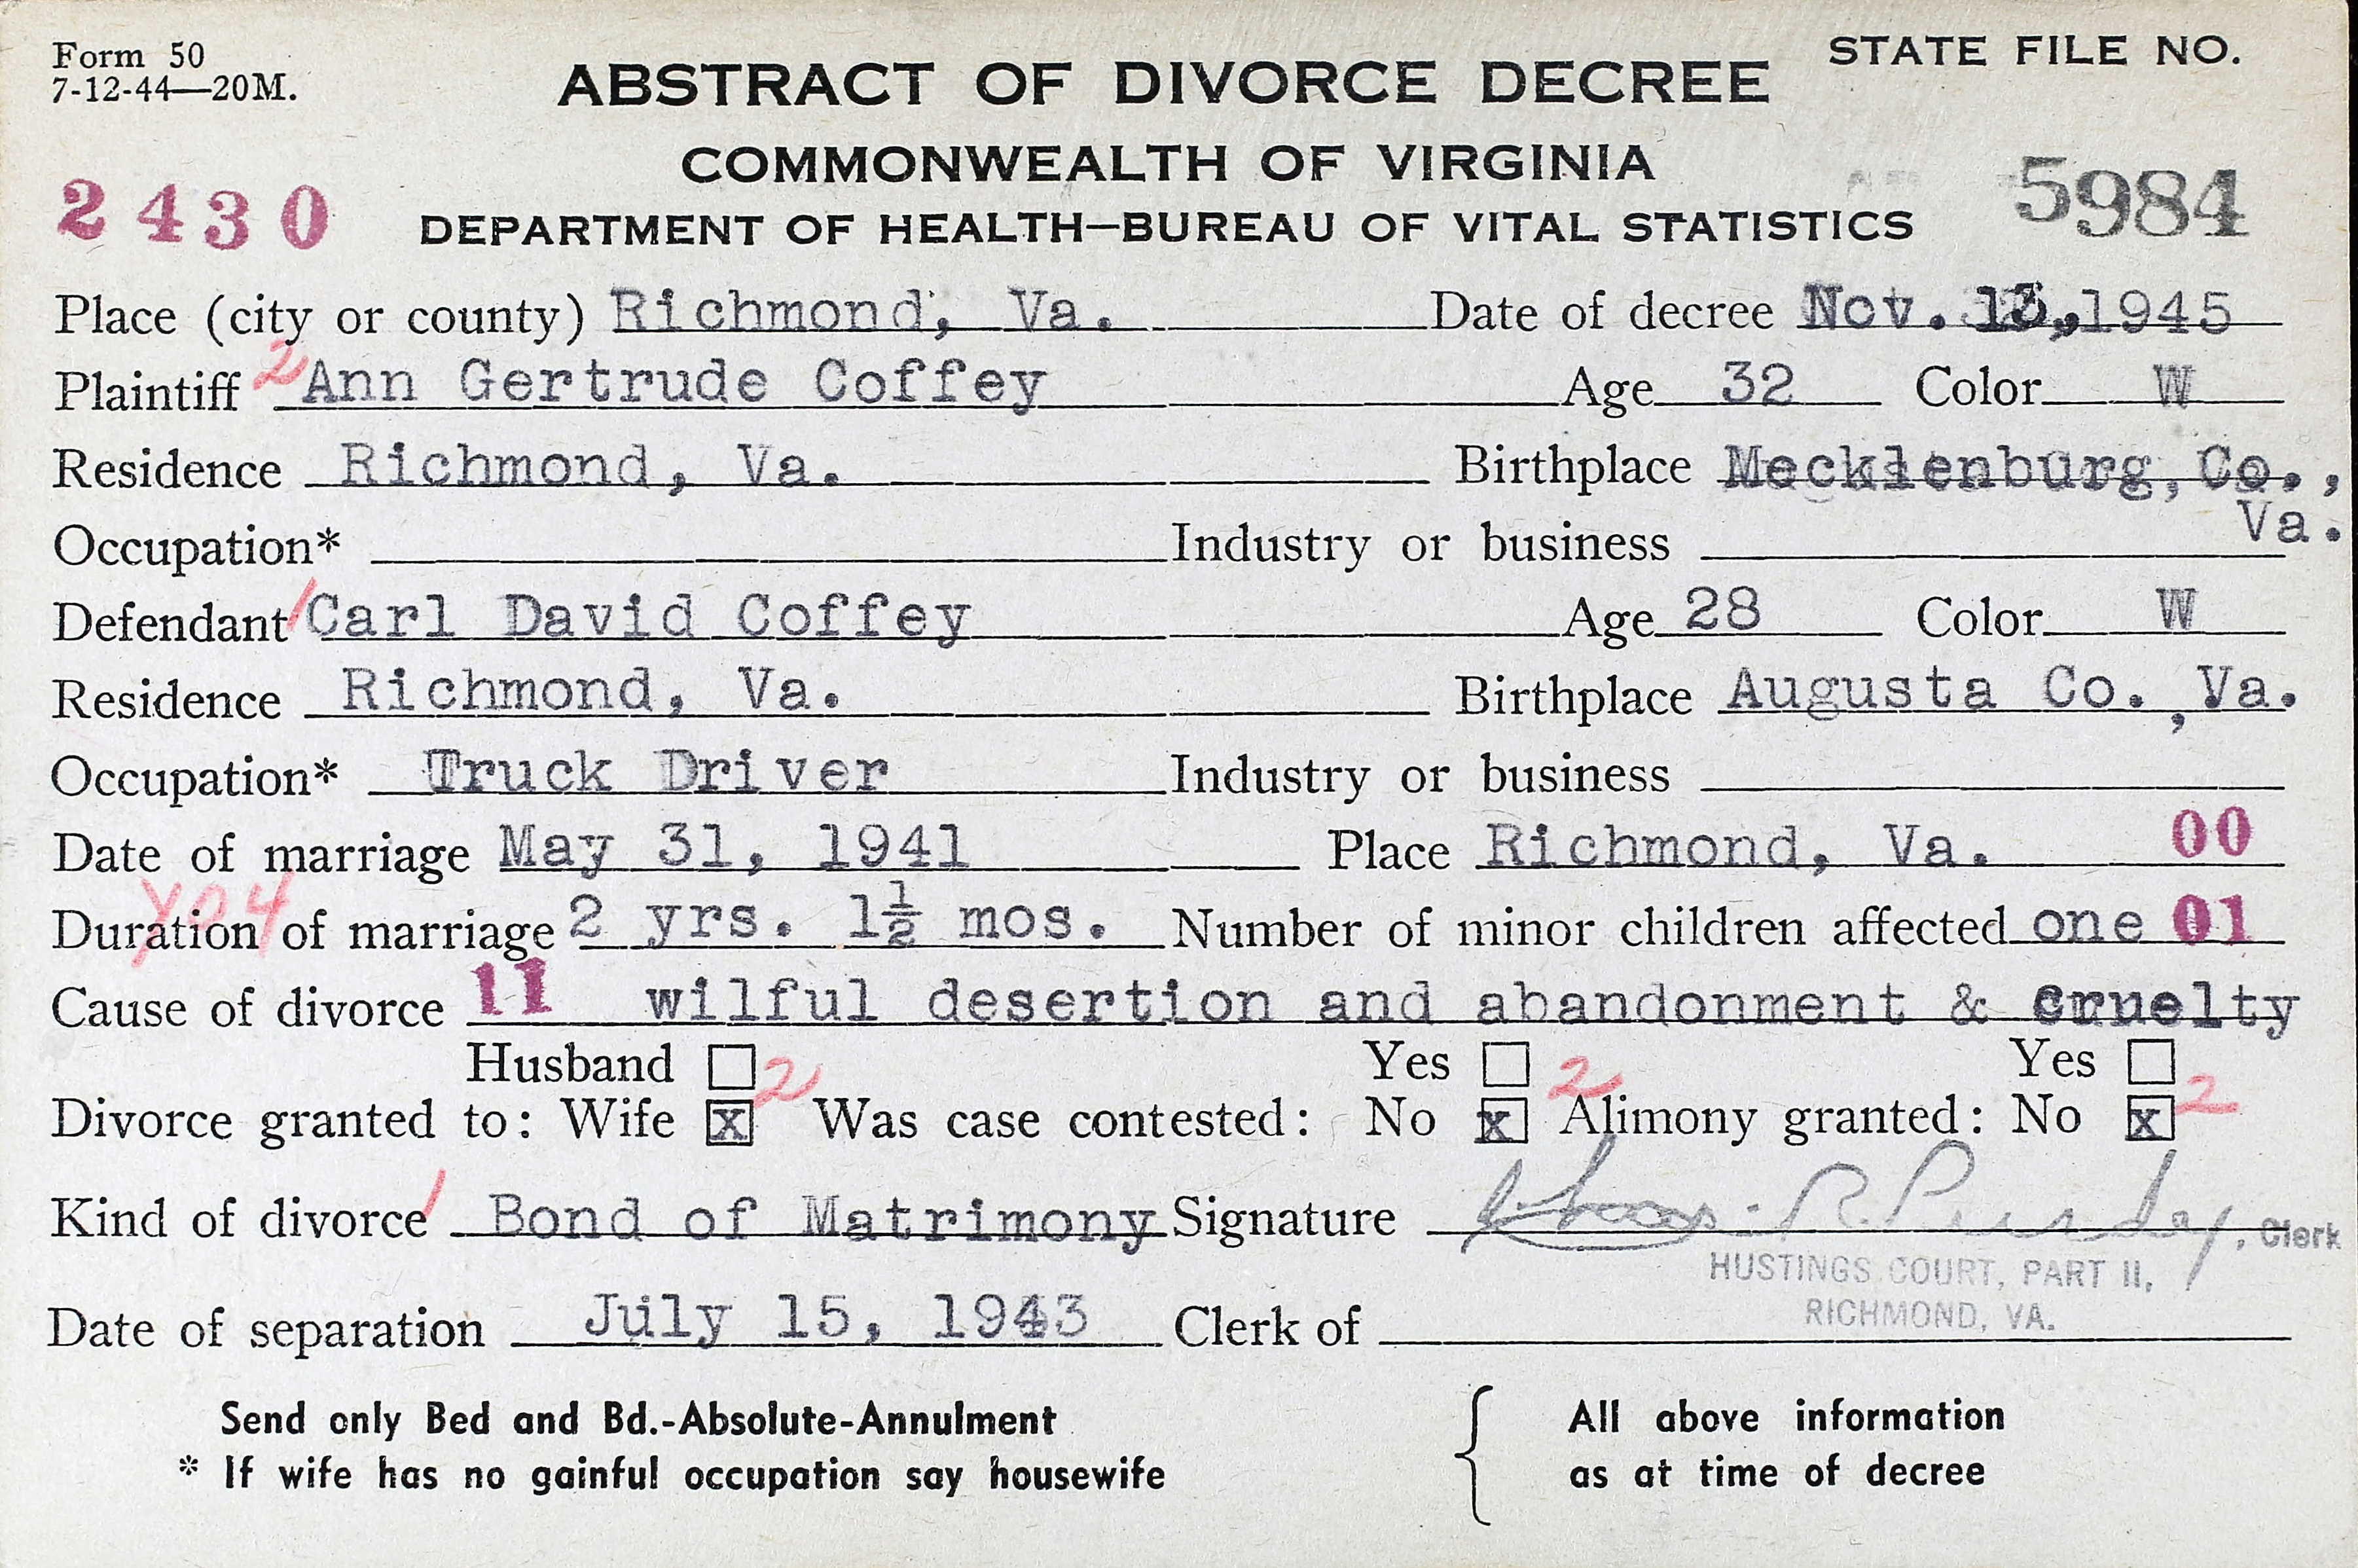 Form 50
7-12-44—20M.
STATE FILE NO.
ABSTRACT OF DIVORCE DECREE
COMMONWEALTH OF VIRGINIA
2430
5984
DEPARTMENT OF HEALTH—BUREAU OF VITAL STATISTICS
Place (city or county) Richmond, Va. Date of decree Nov. 13, 1945
Plaintiff 2 Ann Gertrude Coffey Age 32 Color W
Residence Richmond, Va. Birthplace Mecklenburg, Co., Va.
Occupation* Industry or business
Defendant / Carl David Coffey Age 28 Color W
Residence Richmond, Va. Birthplace Augusta Co., Va.
Occupation* Truck Driver Industry or business
Date of marriage May 31, 1941 Place Richmond, Va. 00
Duration of marriage 2 yrs. 1½ mos. Number of minor children affected one 01
Cause of divorce 11 wilful desertion and abandonment & cruelty
Husband ☐ 2 Yes ☐ 2 Yes ☐ 2
Divorce granted to: Wife ☒ Was case contested: No ☒ Alimony granted: No ☒
Kind of divorce / Bond of Matrimony Signature R. Purdy, Clerk
HUSTINGS COURT, PART II,
RICHMOND, VA.
Date of separation July 15, 1943 Clerk of
Send only Bed and Bd.-Absolute-Annulment
* If wife has no gainful occupation say housewife
All above information
as at time of decree